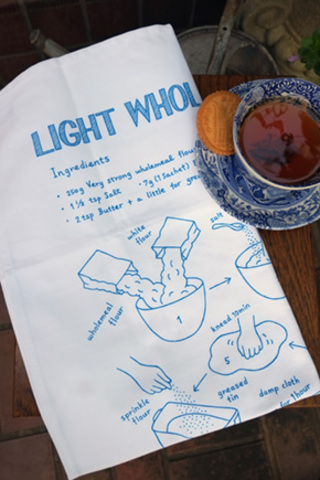 LIGHT WHOL
Ingredients
• 250g Very strong wholemeal flou
• 1½ tsp Salt • 7g (1 Sachet)
• 2 tsp Butter + a little for gre
white flour
salt
wholemeal flour
1
knead 10min
5
sprinkle flour
greased tin
damp cloth
for 1hour